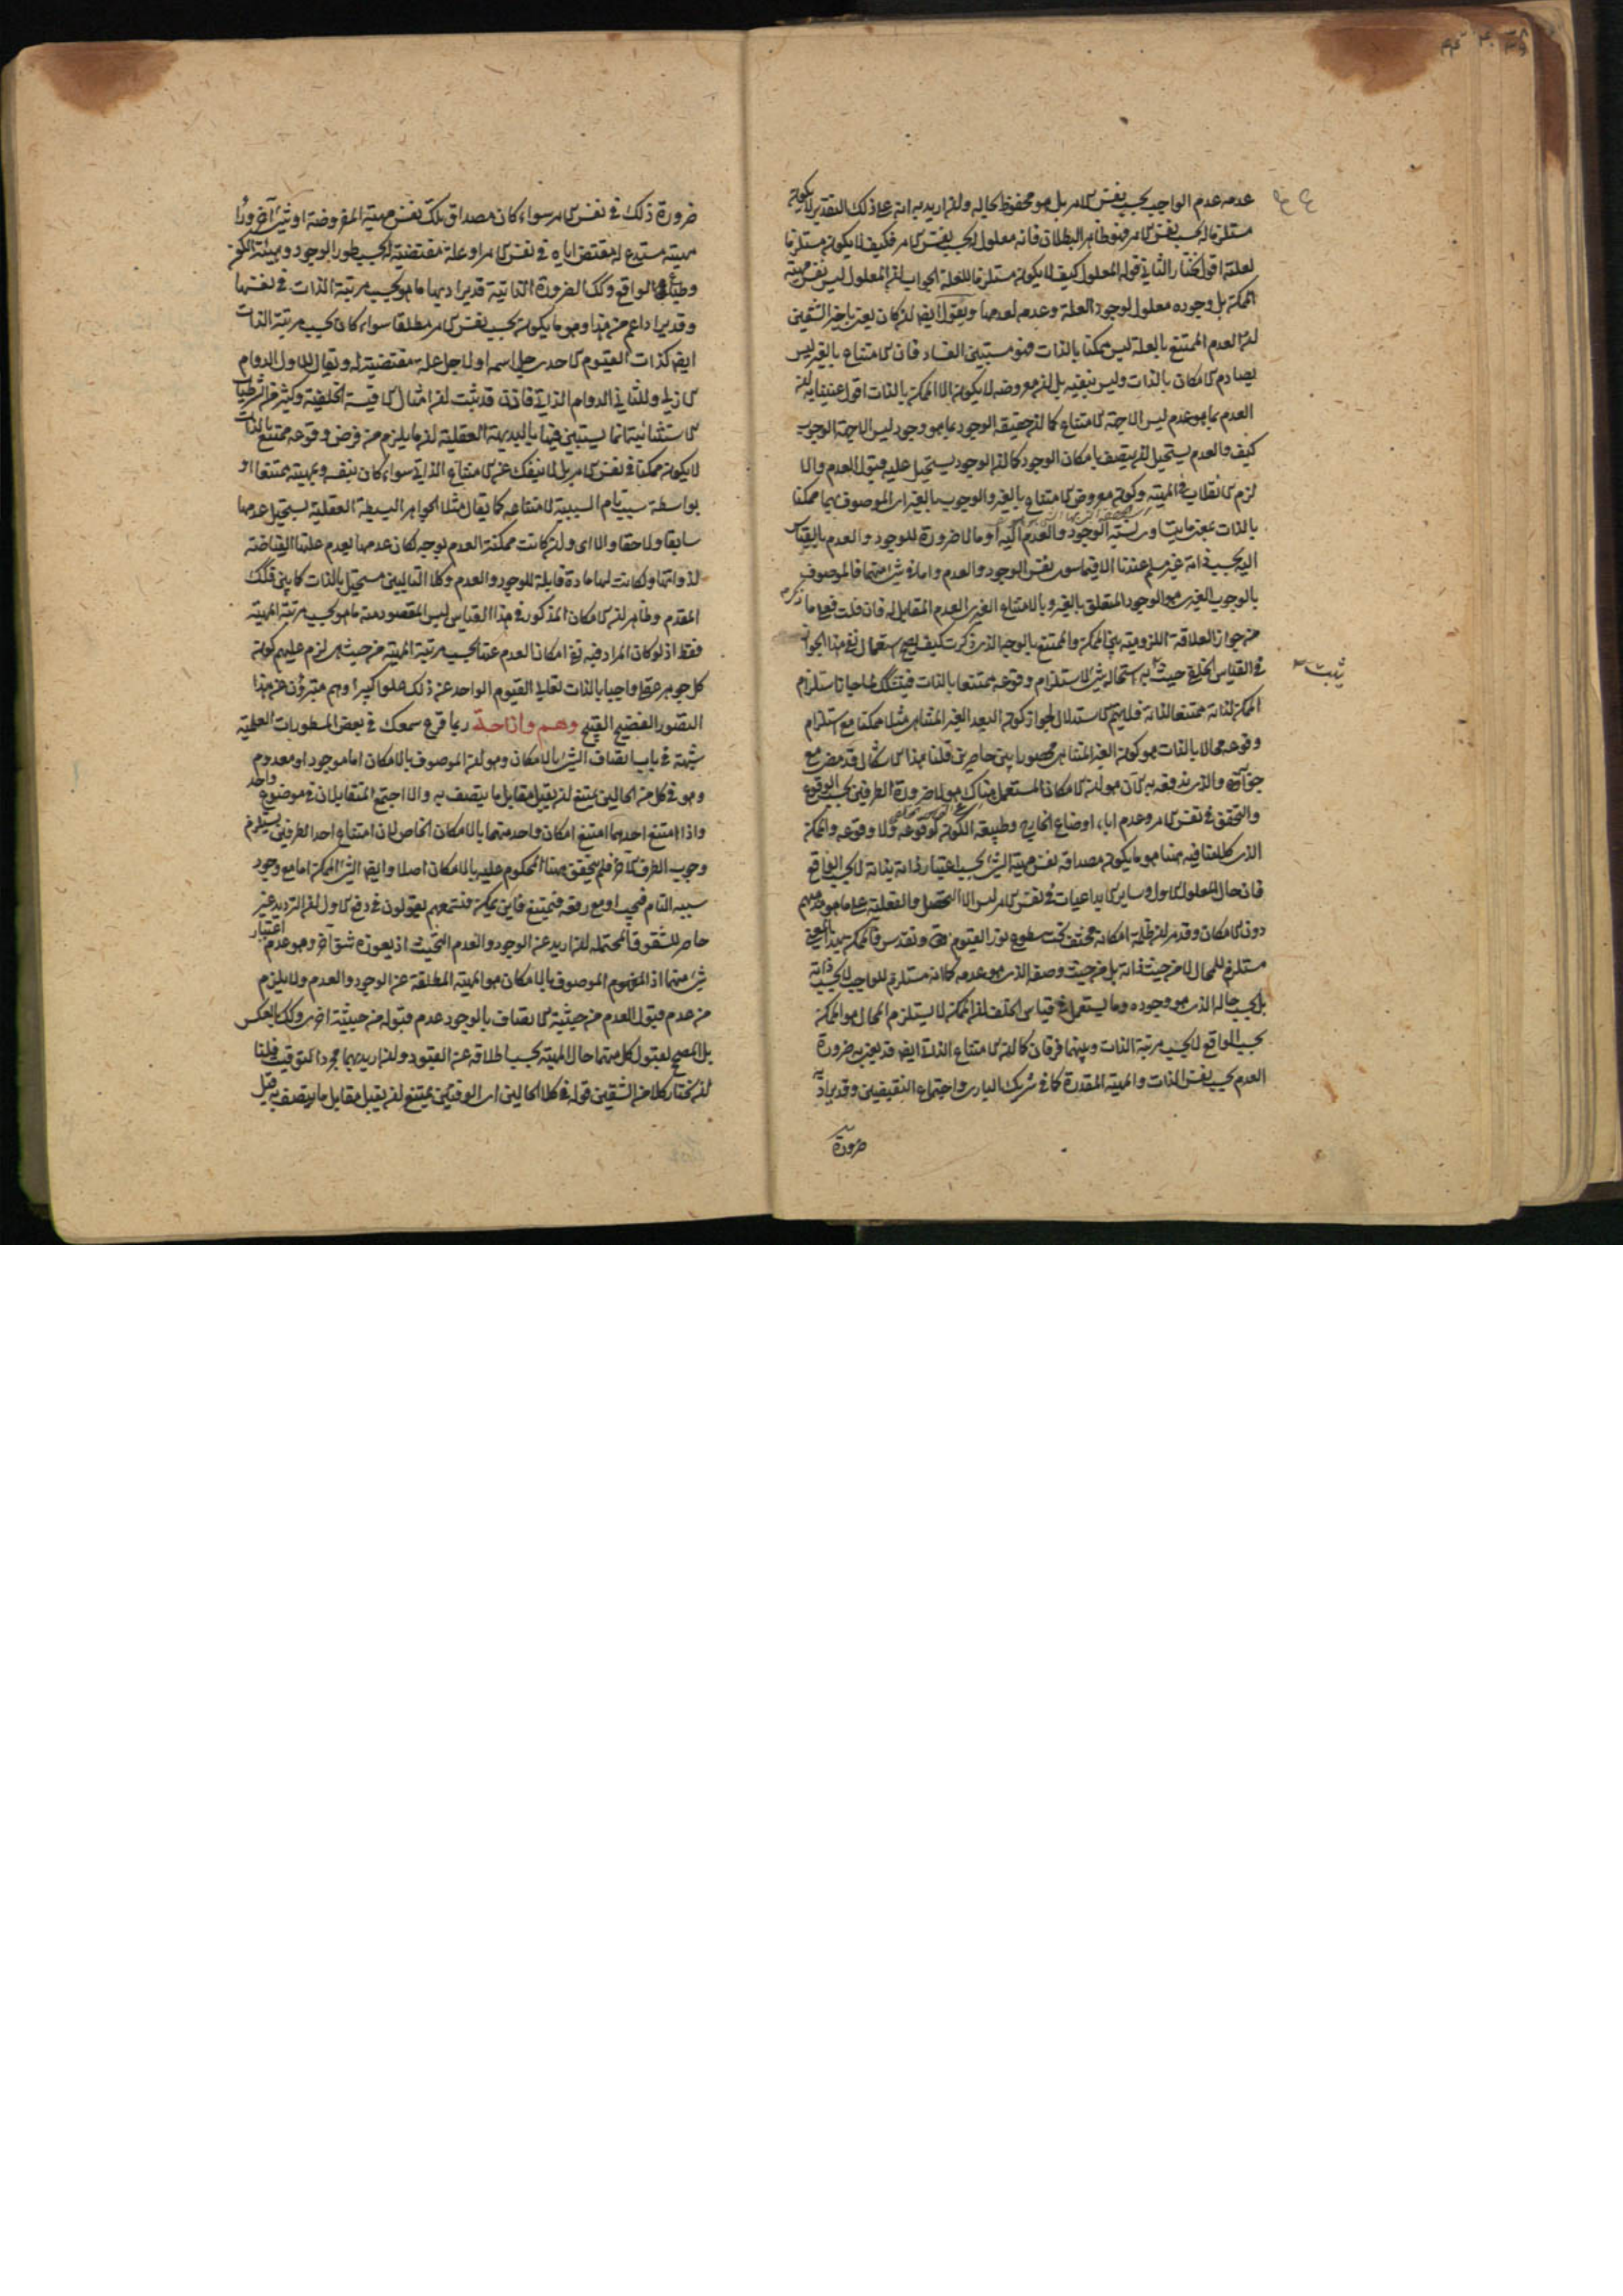 عدمه عدم الواجب بحسب نفس الامر بل هو محفوظ بحاله وان اريد به انه على ذلك التقدير لا يكون
مستلزما له بحسب نفس الامر فهو ظاهر البطلان فانه معلول له بحسب نفس الامر فكيف لا يكون مستلزما
لعلته اقول نختار الثاني قوله المعلول كيف لا يكون مستلزما للعلة الجواب ان المعلول ليس نفس مهية
الممكن بل وجوده معلول لوجود العلة وعدمه لعدمها ويقول ايضا
العدم الممتنع بالعلة ليس ممكنا بالذات فهو مستبين الفساد فان الامتناع بالغير ليس
يصادم الامكان بالذات وليس بل ان معروضه لا يكون الا الممكن بالذات اقول
العدم بما هو عدم ليس الا جهة الامتناع كما ان حقيقة الوجود بما هو وجود ليس الا جهة الوجوب
كيف والعدم يستحيل ان يتصف بامكان الوجود كما ان الوجود يستحيل عليه قبول العدم والا
لزم الانقلاب في المهية وكون معروض الامتناع بالغير والوجوب بالغير اى الموصوف بهما ممكنا
بالذات بمعنى ما يتساوى نسبة الوجود والعدم اليه او ما لا ضرورة للوجود والعدم بالقياس
اليه بحسب ذاته غير مسلم عندنا الا فيما سوى نفس الوجود والعدم
بالوجوب الغيرى هو الوجود المتعلق بالغير وبالامتناع الغيرى العدم المقابل له فان قلت فعلى ما ذكرتم
من جواز العلاقة اللزومية بين الممكن والممتنع بالوجه الذى ذكرت كيف يصح استعمال نفى هذا الجواز
في القياس الخلفى حيث يثبت به استحالة شئ لاستلزام وقوعه ممتنعا بالذات
الممكن لذاته ممتنعا لذاته فلا يتم الاستدلال لجواز كون البعد الغير المتناهى مثلا ممكنا مع استلزام
وقوعه محالا بالذات هو كون الغير المتناهى محصورا بين حاصرين قلنا هذا الاشكال قد مضى مع
جوابه والذى ندفعه به الآن هو ان الامكان المستعمل هناك هو لا ضرورة الطرفين بحسب الوقوع
والتحقق في نفس الامر وعدم اباء اوضاع الخارج وطبيعة الكون لوقوعه ولا وقوعه والممكن
الذى كلامنا فيه ههنا هو ما يكون مصداقه نفس مهية الشئ بحسب اعتبار ذاته بذاته لا بحسب الواقع
فان حال المعلول الاول وساير الابداعيات في نفس الامر ليس الا التحصل والفعلية على ما هو
دون الامكان وقد مر ان ظلمة امكانه مختف تحت سطوع نور القيوم تعالى وتقدس
مستلزم للمحال لا من حيث ذاته بل من حيث وصفه الذى هو عدمه كما انه مستلزم للواجب لا بحسب ذاته
بل بحسب حاله الذى هو وجوده وما يستعمل في قياس الخلف ان الممكن لا يستلزم المحال هو الممكن
بحسب الواقع لا بحسب مرتبة الذات وبينهما فرقان كما ان الامتناع الذاتى ايضا قد يعنى به ضرورة
العدم بحسب نفس الذات والمهية المقدرة كما في شريك البارى واجتماع النقيضين وقد يراد به
ضرورة
يثبت
ضرورة ذلك في نفس الامر سواء كان مصداق تلك نفس مهية المفروضة او شيئا آخر وراء
مهيته مستدع له مقتض اياه في نفس الامر او علة مقتضية له بحسب طور الوجود وهيئة الكون
وطباع الواقع وكذلك الضرورة الذاتية قد يراد بها ما هو بحسب مرتبة الذات في نفسها
وقد يراد اعم من هذا وهو ما يكون بحسب نفس الامر مطلقا سواء كان بحسب مرتبة الذات
ايضا كذات القيوم الاحد جل اسمه او لاجل علة مقتضية له ويقال للاول الدوام
الازلي وللثاني الدوام الذاتي فاذن قد ثبت ان امثال الاقيسة الخلفية وكثير من الشرطيات
الاستثنائية انما يستبين فيها بالبديهة العقلية ان ما يلزم من فرض وقوعه ممتنع بالذات
لا يكون ممكنا في نفس الامر بل لا ينفك عن الامتناع الذاتي سواء كان بنفسه وبمهيته ممتنعا او
بواسطة سببه التام السببية لامتناعه كما يقال مثلا الجواهر البسيطة العقلية يستحيل عدمها
سابقا ولاحقا والا اى وان كانت ممكنة العدم بوجه لكان عدمها بعدم علتها الفياضة
لذواتها ولكانت لها مادة قابلة للوجود والعدم وكلا التاليين مستحيل بالذات كما بين فكذلك
المقدم وظاهر ان الامكان المذكور في هذا القياس ليس المقصود منه ما هو بحسب مرتبة المهية
فقط اذ لو كان المراد فيه نفى امكان العدم عنها بحسب مرتبة المهية من حيث هى لزم عليهم كون
كل جوهر عقلى واجبا بالذات تعالى القيوم الواحد عن ذلك علوا كبيرا وهم متبرؤن عن هذا
التصور الفضيح القبيح وهم وازاحة ربما قرع سمعك في بعض المسطورات العلمية
شبهة في باب اتصاف الشئ بالامكان وهو ان الموصوف بالامكان اما موجود او معدوم
وهو في كل من الحالين يمتنع ان يقبل مقابل ما يتصف به والا اجتمع المتقابلان في موضوع واحد
واذا امتنع احدهما امتنع امكان واحد منهما بالامكان الخاص لان امتناع احد الطرفين يستلزم
وجوب الطرف الآخر فلم يتحقق ههنا المحكوم عليه بالامكان اصلا وايضا الشئ الممكن اما مع وجود
سببه التام فيجب او مع رفعه فيمتنع فاين يمكن فتسمعهم يقولون في دفع الاول ان الترديد غير
حاصر للشقوق المحتملة ان اريد عن الوجود والعدم التحيث اذ يعوزه شق آخر وهو عدم اعتبار
شئ منهما اذ المفهوم الموصوف بالامكان هو المهية المطلقة عن الوجود والعدم ولا يلزم
من عدم قبول العدم من حيثية الاتصاف بالوجود عدم قبوله من حيثية اخرى وكذلك بالعكس
بل المصحح لقبول كل منهما حال المهية بحسب اطلاقه عن القيود وان اريد بهما مجرد التوقيت فلنا
ان نختار كلا من الشقين قوله في كلا الحالين اى الوقتين يمتنع ان يقبل مقابل ما يتصف به قيل